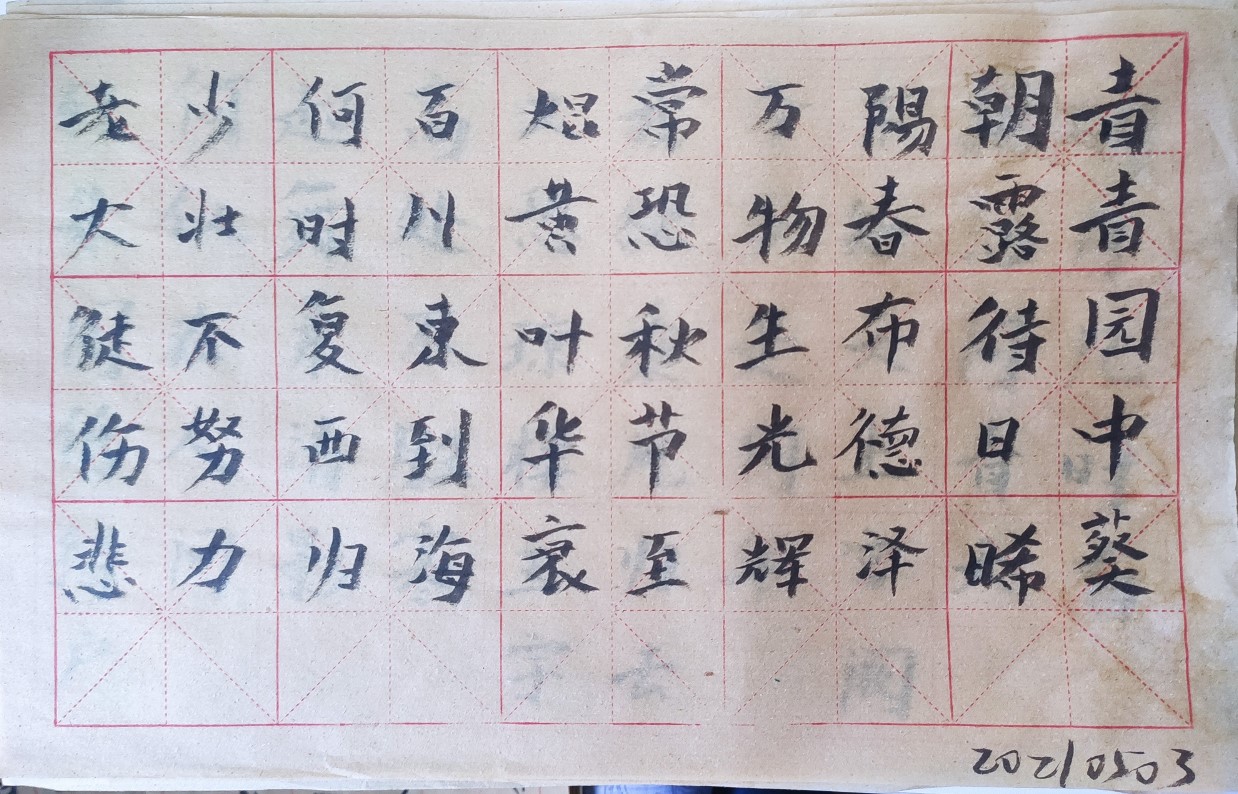 青青园中葵
朝露待日晞
陽春布德泽
万物生光辉
常恐秋节至
焜黄叶华衰
百川東到海
何时复西归
少壮不努力
老大徒伤悲
20210503